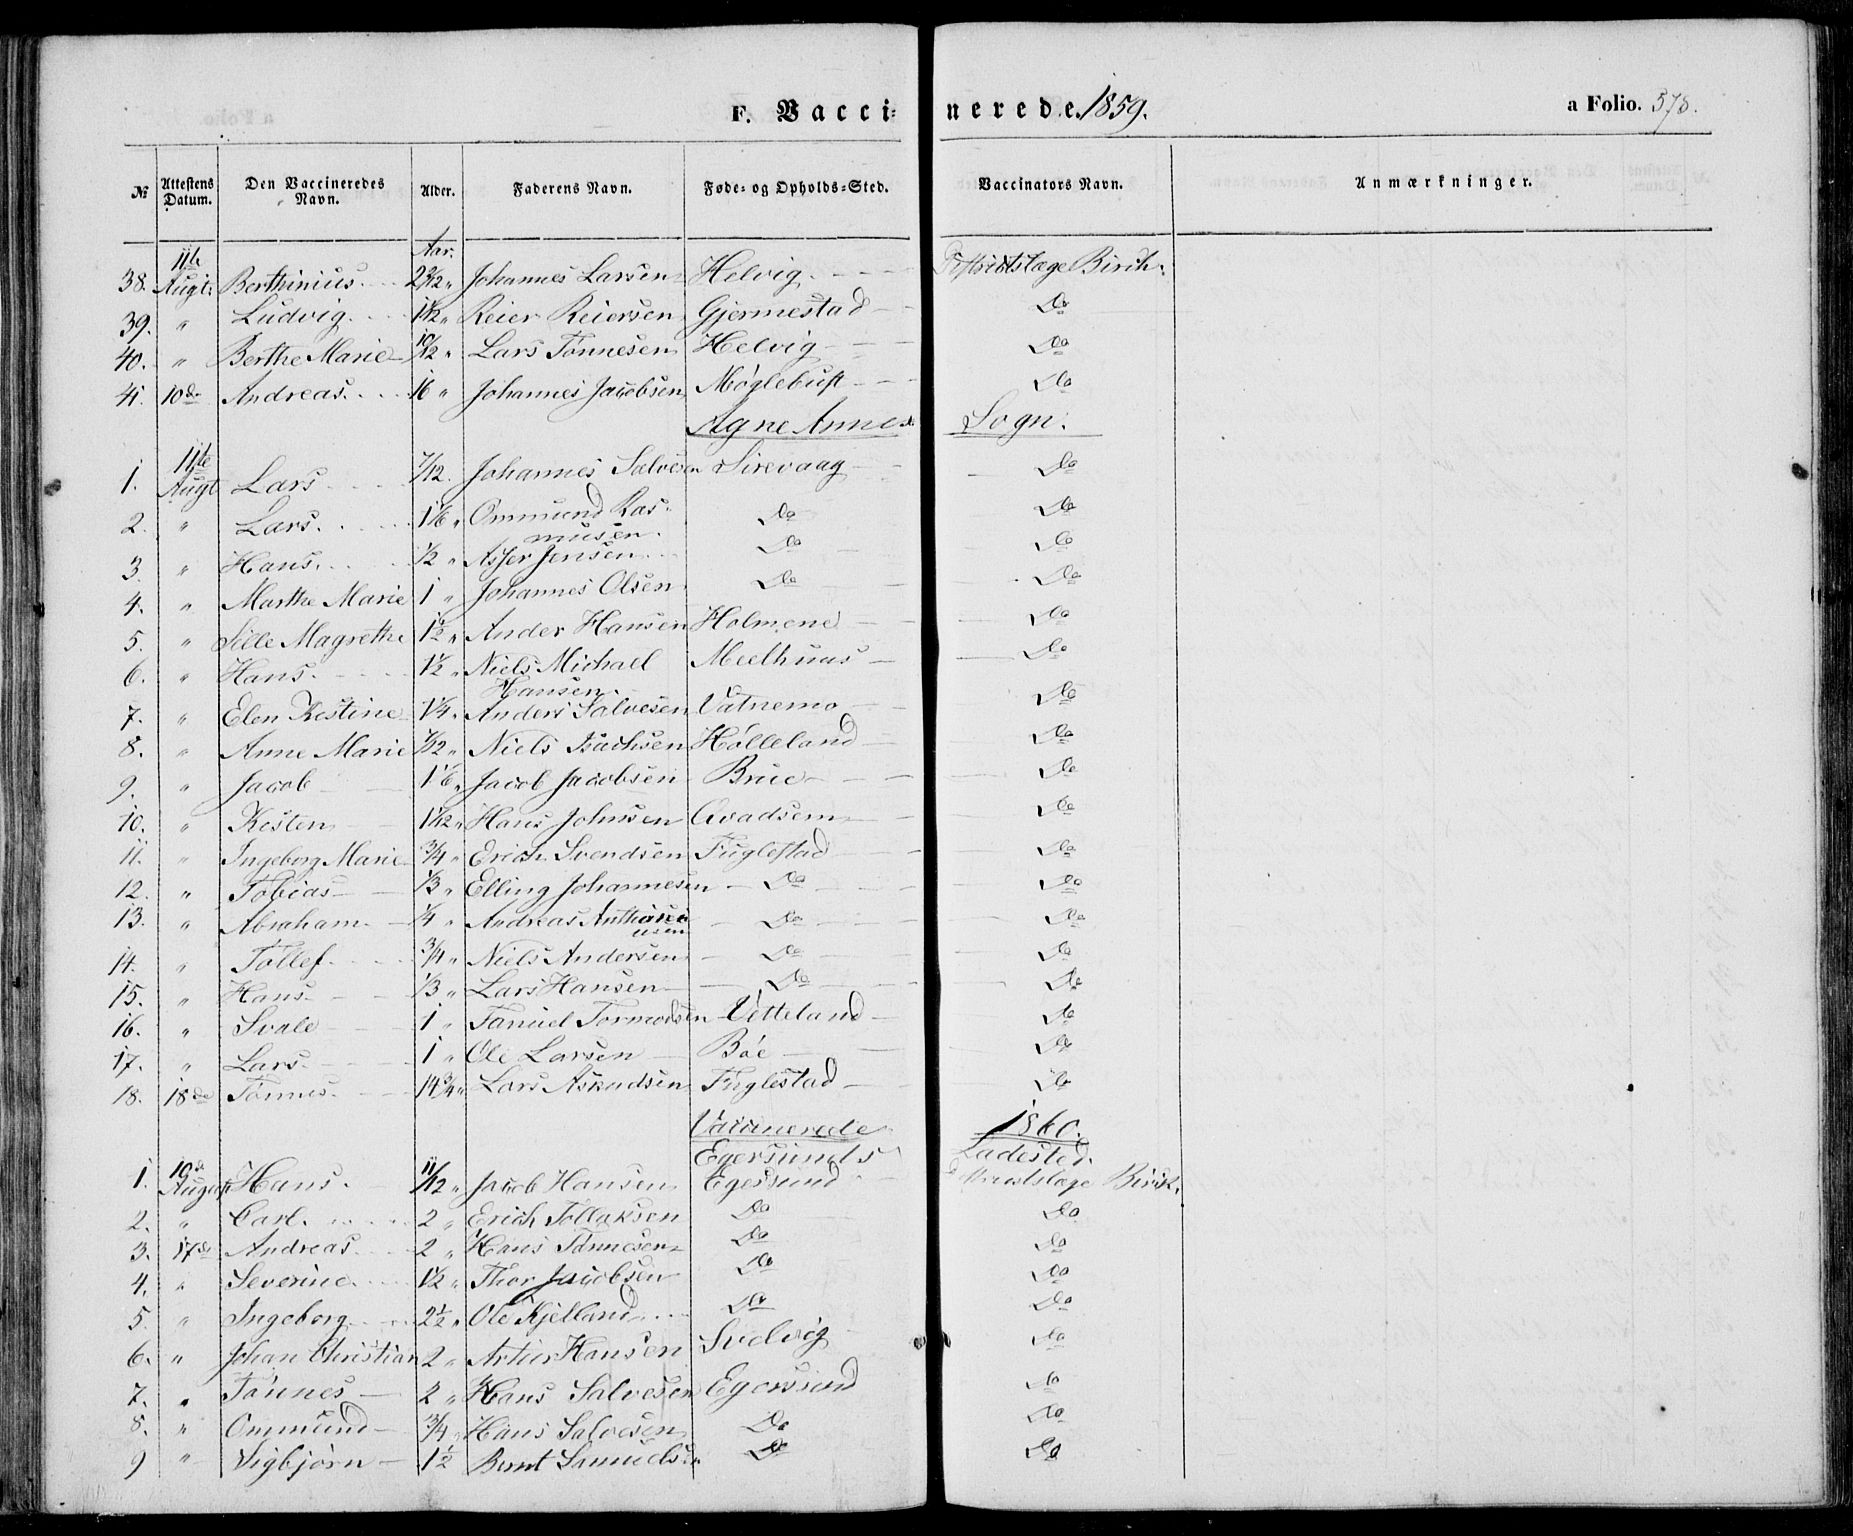 F. Vaccinerede. 1859. a Folio. 578.
№ Attestens Datum. Den Vaccineredes Navn. Alder. Faderens Navn. Føde- og Opholds-Sted. Vaccinators Navn. Anmærkninger.
Aar.
38. 11te Augt. Berthinius. 2 3/12 " Johannes Larsen Helvig. Distriktslæge Birch.
39. " Ludvig. Reier Reiersen Gjermestad Do
40. " Berthe Marie 10/12 " Lars Tønnesen Helvig Do
41. 10de Andreas. 16 " Johannes Jacobsen Møglebust Do
Ogne Annex Sogn.
1. 11te Augt Lars 7/12. Johannes Salvesen Sirevaag Do
2. " Lars. 1 1/6 " Ommund Ras-
musen. Do Do
3. " Hans. 1/2 " Asser Jensen Do Do
4. " Marthe Marie 1 " Johannes Olsen Do Do
5. " Sille Magrethe 1 1/2 " Ander Hansen Holmene Do
6. " Hans. 1 1/2 " Niels Michael
Hansen. Meelhuus Do
7. " Elen Kestine 1 1/4 " Anders Salvesen Vatnemo Do
8. " Anne Marie 7/12 " Niels Isachsen Hølleland Do
9. " Jacob 1 1/6 " Jacob Jacobsen Brue Do
10. " Kesten 1 1/12 " Hans Johnsen Qvadsem Do
11. " Ingeborg Marie 3/4 " Erich Svendsen Fuglestad Do
12. " Tobias 1/3 " Elling Johannesen Do Do
13. " Abraham 1/4 " Andreas Do Do
14. " Tollef. 3/4 " Niels Andersen Do Do
15. " Hans 1/3 " Lars Hansen Do Do
16. " Svale 1 " Tanuel Tormodsen Vetteland Do
17. " Lars. 1 " Ole Larsen Bøe Do
18. 18de Tønnes. 14 3/4 " Lars Askudsen Fuglestad Do
Vaccinerede 1860.
Egersunds Ladested.
1. 10de August Hans. 11/12 " Jacob Hansen Egersund Distriktslæge Birch.
2. " Carl. 2 " Erich Tollaksen Do Do
3. 17de Andreas 2 " Hans Tønnesen Do Do
4. " Severine 1 1/2 " Thor Jacobsen Do Do
5. " Ingeborg 2 1/2 " Ole Kjelland Do Do
6. " Johan Christian 2 " Artur Hansen Svelvig Do
7. " Tønnes 2 " Hans Salvesen Egersund Do
8. " Ommund 3/4 " Hans Salvesen Do Do
9 " Sigbjørn 1 1/2 Bernt Samuelsen Do Do